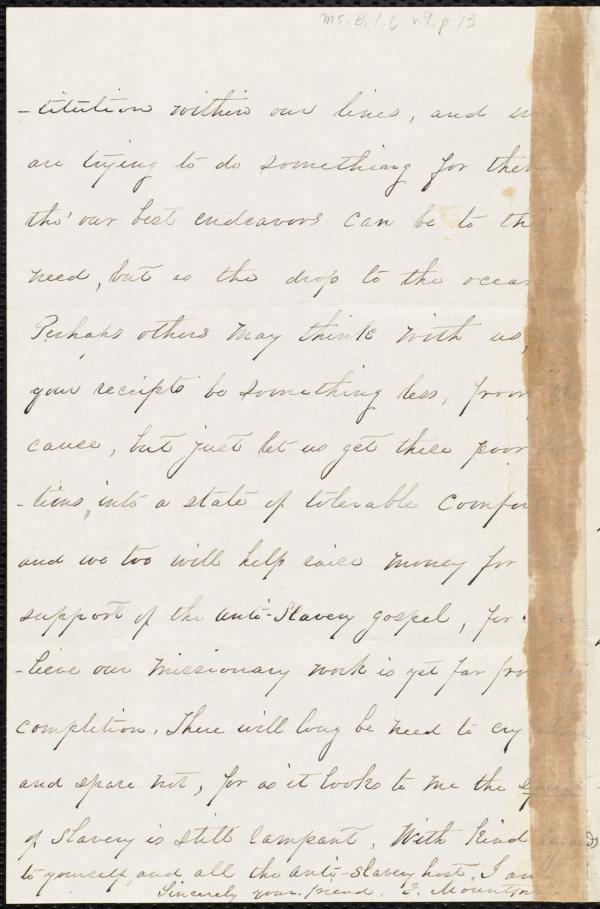 Ms. B. 1. 6 v. 9. p. 73
-titution within our lines, and
are trying to do something for them
tho' our best endeavors can be to
need, but as the drop to the ocean
Perhaps others may think with us,
your receipts be something less, from
cause, but just let us get these poor
-tims, into a state of tolerable comfort
and we too will help raise money for
support of the anti-Slavery gospel, for
-lieve our missionary work is yet far from
completion. There will long be need to cry
and spare not, for as it looks to me the
of Slavery is still rampant. With kind
to yourself, and all the anti-slavery host, I am
Sincerely your friend. E.